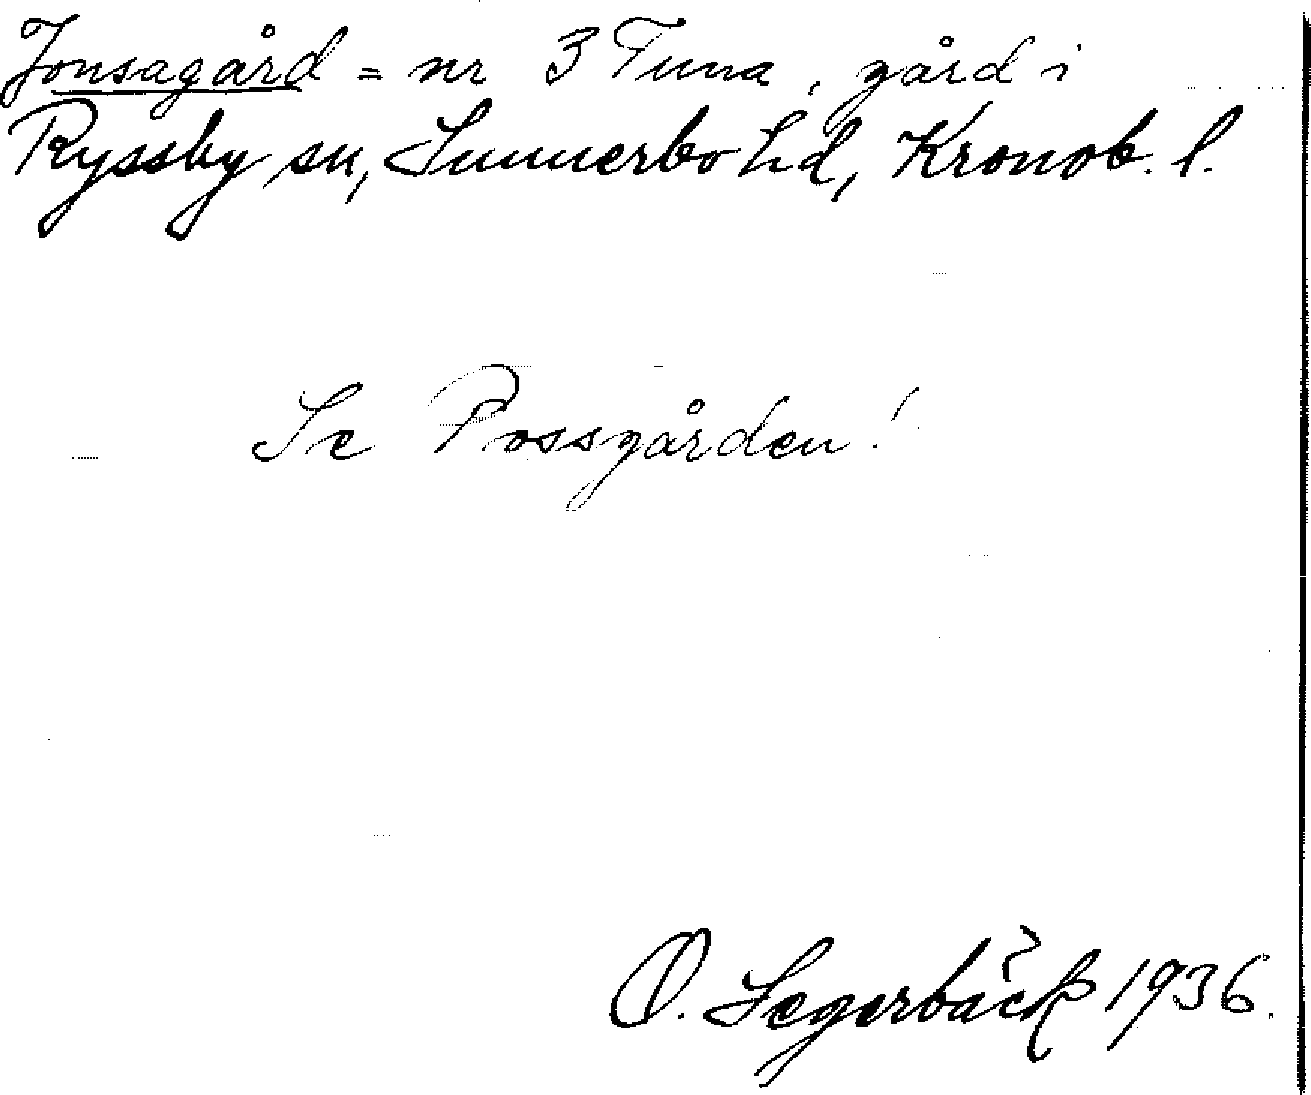 Jonsagård = nr 3 Tuna, gård i
Ryssby sn, Sunnerbo hd, Kronob. l.
Se Possgården!
O. Segerbäck 1936.